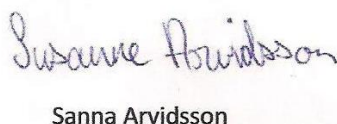 Susanne Arvidsson
Sanna Arvidsson